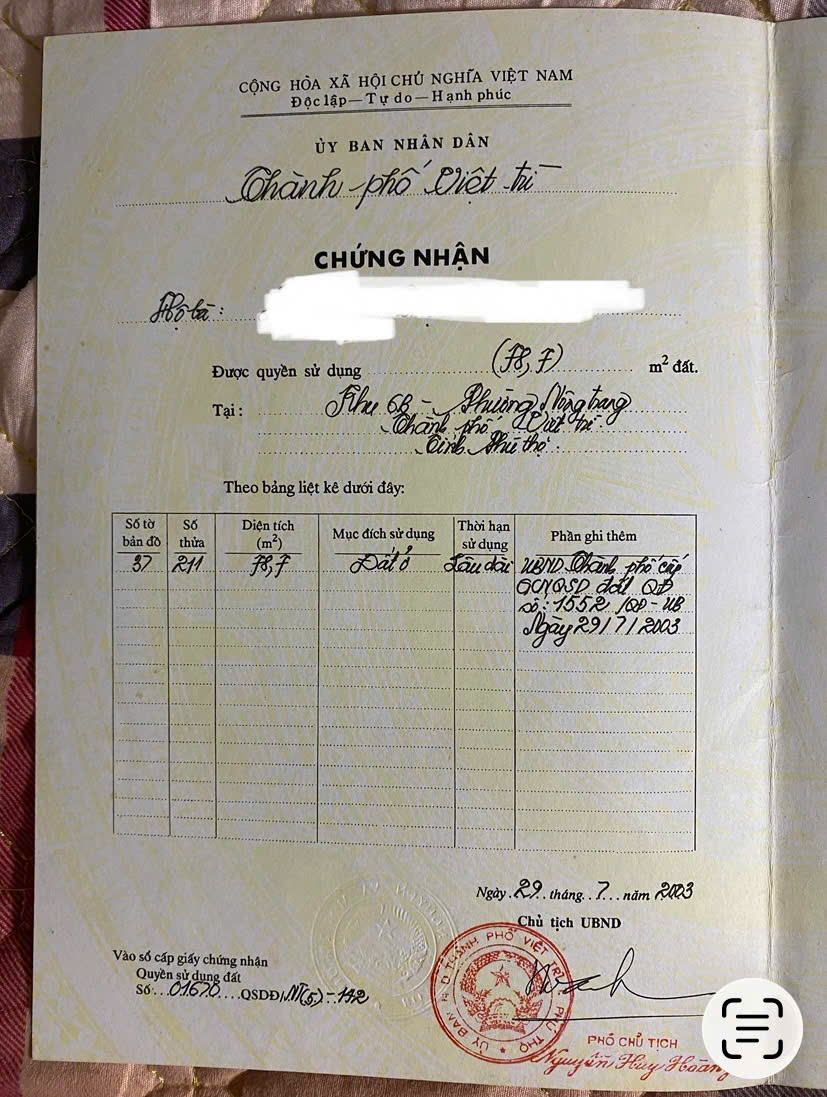 CỘNG HÒA XÃ HỘI CHỦ NGHĨA VIỆT NAM
Độc lập — Tự do — Hạnh phúc
ỦY BAN NHÂN DÂN
Thành phố Việt trì
CHỨNG NHẬN
Hộ bà :
Được quyền sử dụng (78,7) m² đất.
Tại : Khu 6B - Phường Nông trang
Thành phố Việt trì
Tỉnh Phú thọ
Theo bảng liệt kê dưới đây:
Số tờ bản đồ Số thửa Diện tích (m²) Mục đích sử dụng Thời hạn sử dụng Phần ghi thêm
37 211 78,7 Đất ở Lâu dài UBND Thành phố cấp
GCNQSD đất QĐ
số : 1552 /QĐ - UB
Ngày 29/7/2003
Ngày 29 tháng 7 năm 2003
Chủ tịch UBND
Vào sổ cấp giấy chứng nhận
Quyền sử dụng đất
Số 01670 QSDĐ/NT(5)-142
ỦY BAN N.D. THÀNH PHỐ VIỆT TRÌ
PHÚ THỌ
PHÓ CHỦ TỊCH
Nguyễn Huy Hoàng